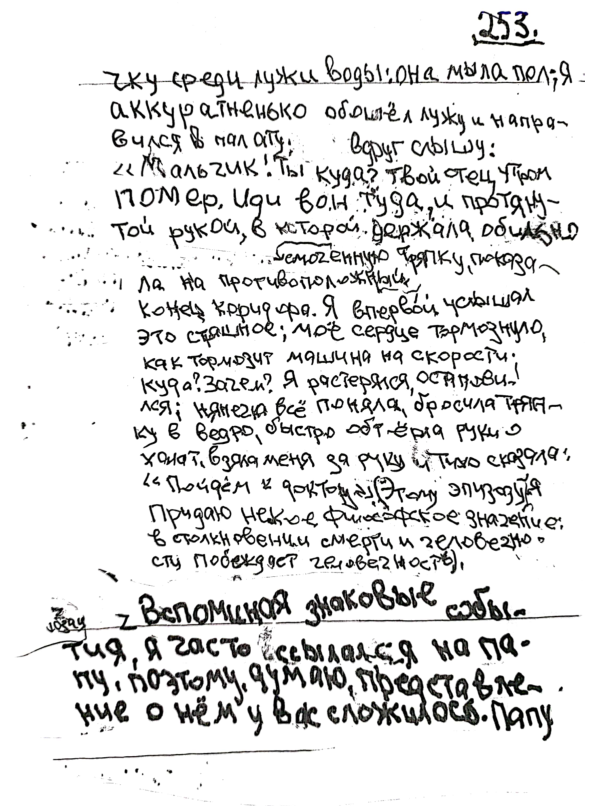 253.
чку среди лужи воды: она мыла пол; я
аккуратненько обошёл лужу и напра-
вился в палату; вдруг слышу:
"Мальчик! Ты куда? Твой отец утром
помер. Иди вон туда, и протяну-
той рукой, в которой держала обильно
смоченную тряпку, показа-
ла на противоположный
конец коридора. Я впервой услышал
это страшное; моё сердце тормознуло,
как тормозит машина на скорости.
Куда? Зачем? Я растерялся, останови-
лся; нянечка всё поняла, бросила тряп-
ку в ведро, быстро обтёрла руки о
халат, взяла меня за руку и тихо сказала:
"Пойдём к доктору" (Этому эпизоду я
придаю некое философское значение:
в столкновении смерти и человечно-
сти побеждает человечность).
z Вспоминая знаковые собы-
тия, я часто ссылался на па-
пу, поэтому, думаю, представле-
ние о нём у вас сложилось. Папу